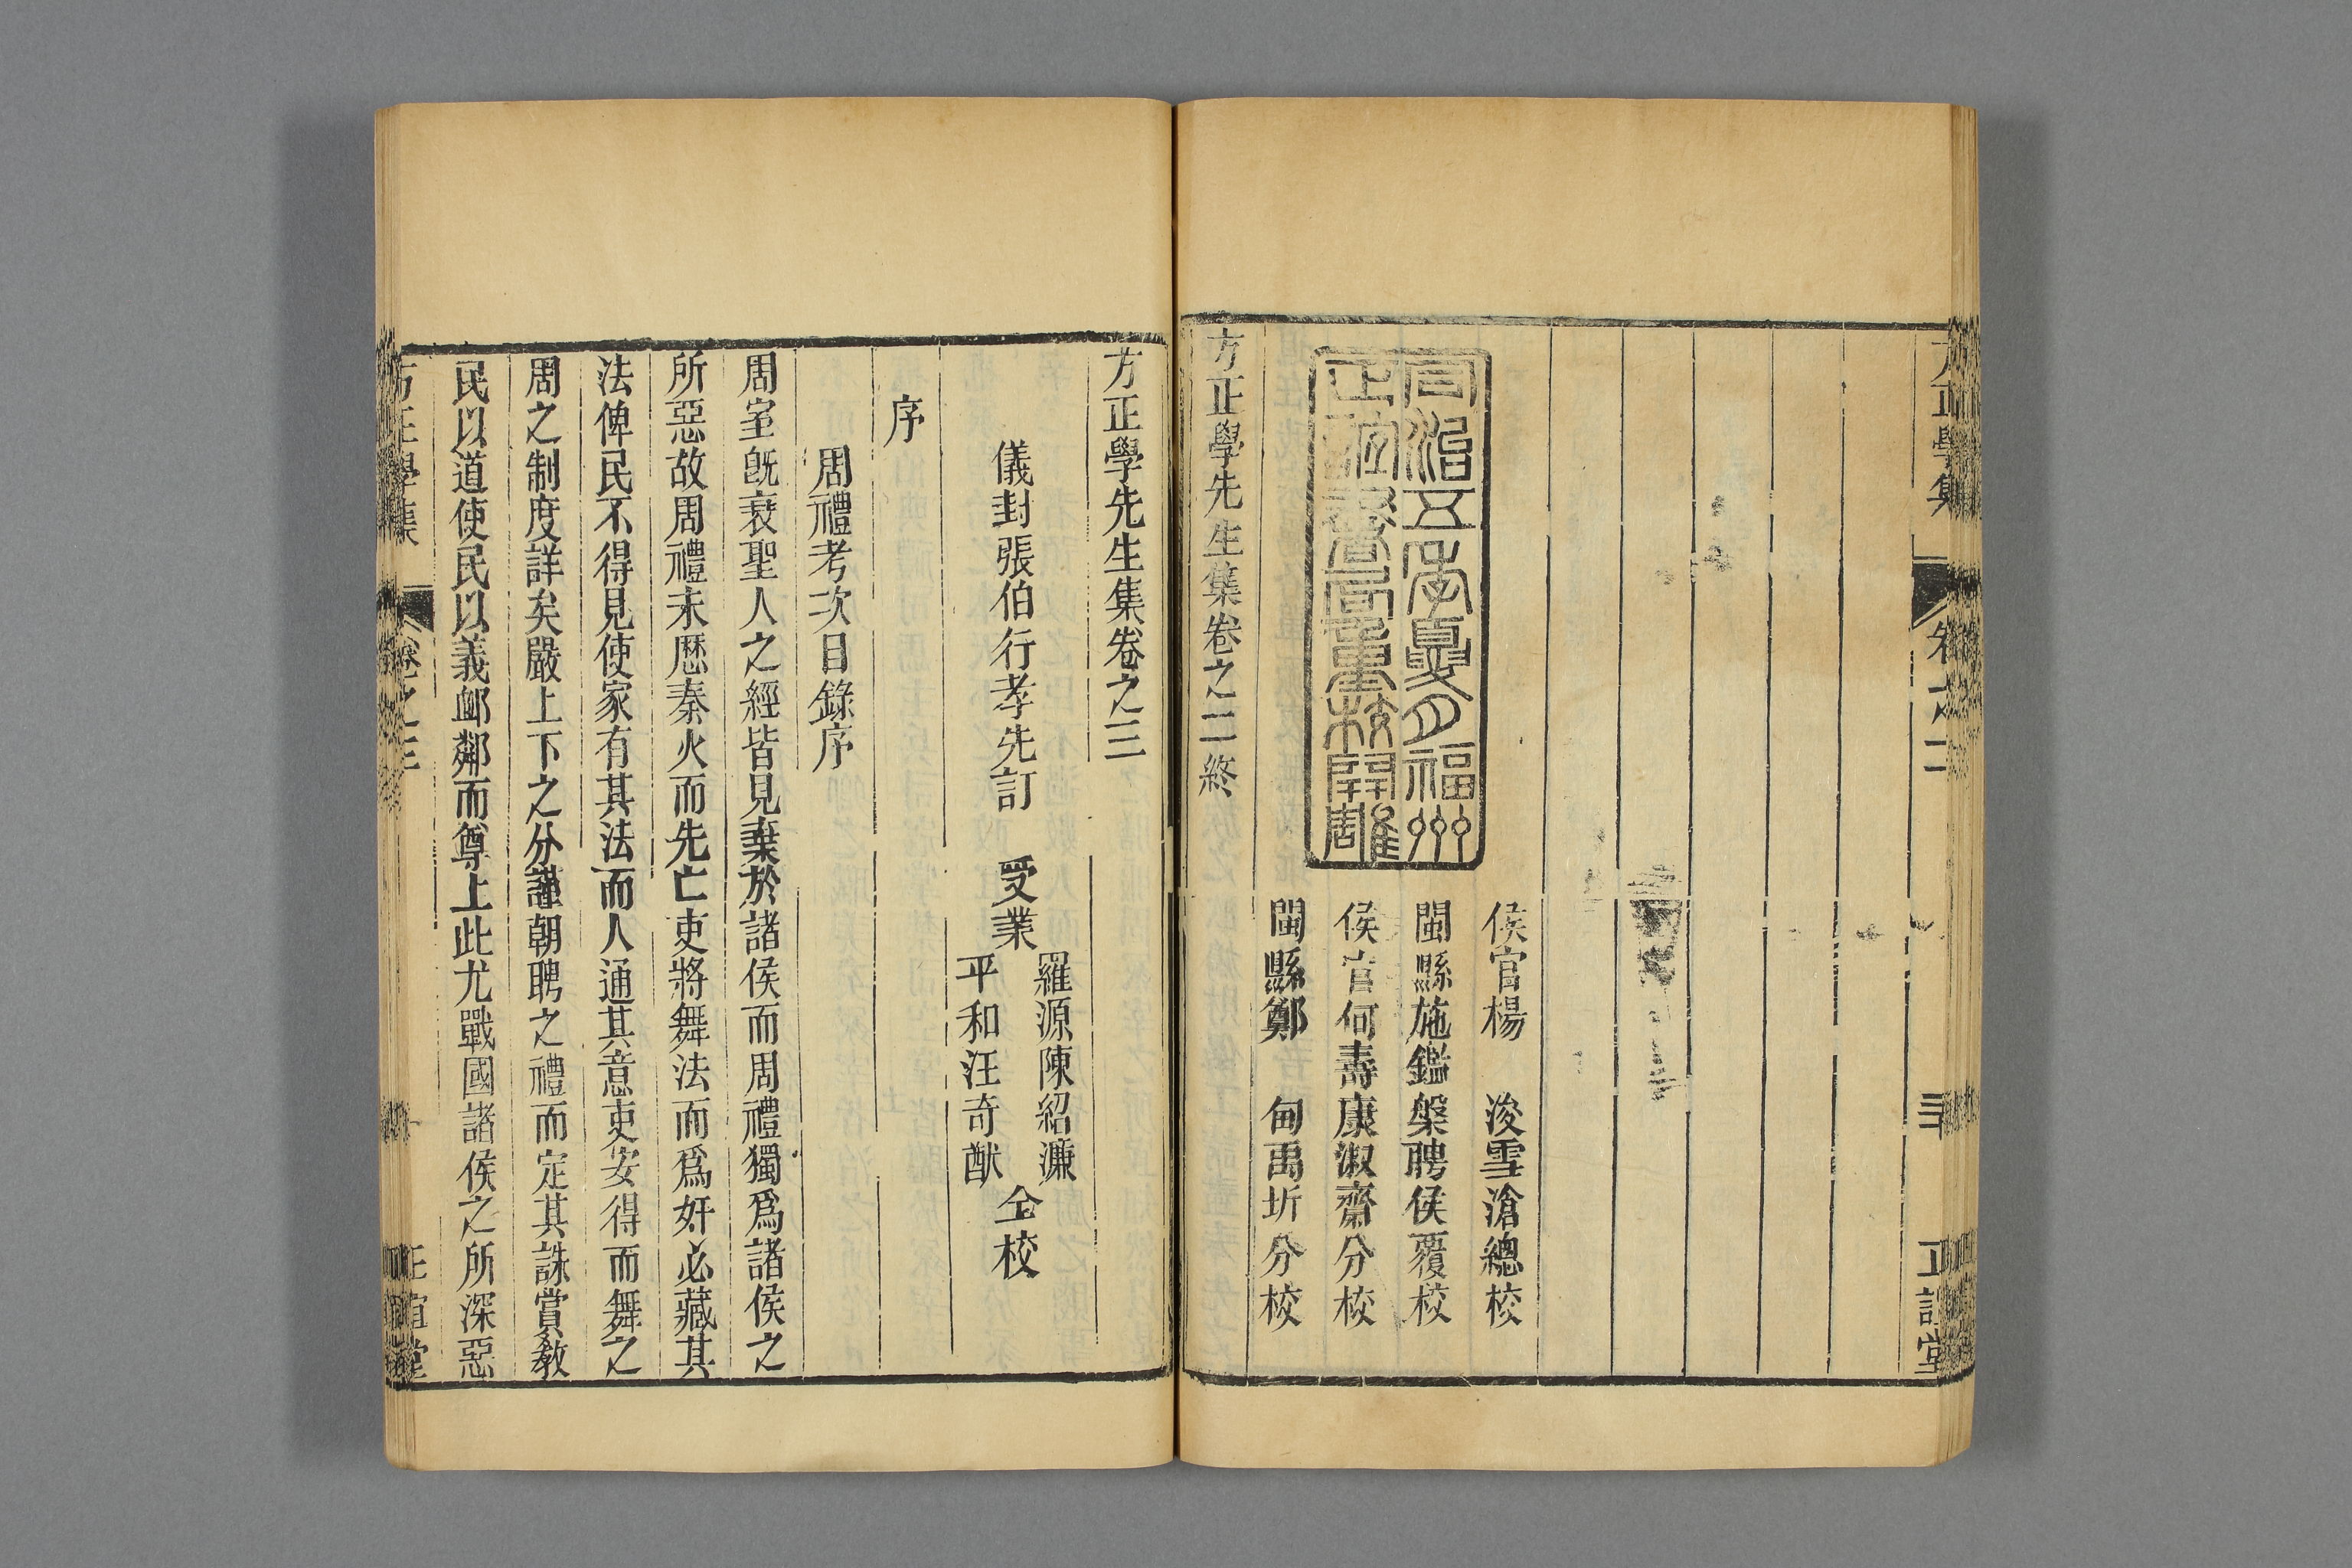 方正學集
卷之二
正誼堂
侯官楊 浚雪滄總校
閩縣施鑑槃聘侯覆校
侯官何壽康淑齋分校
閩縣鄭 甸禹圻分校
同治五年夏月福州
正誼書局重校開雕
方正學先生集卷之二終
方正學先生集卷之三
儀封張伯行孝先訂 受業
羅源陳紹濂
平和汪奇猷
仝校
序
周禮考次目錄序
周室旣衰聖人之經皆見棄於諸侯而周禮獨爲諸侯之
所惡故周禮未歷秦火而先亡吏將舞法而爲奸必藏其
法俾民不得見使家有其法而人通其意吏安得而舞之
周之制度詳矣嚴上下之分謹朝聘之禮而定其誅賞教
民以道使民以義䘏鄰而尊上此尤戰國諸侯之所深惡
方正學集
卷之三
正誼堂